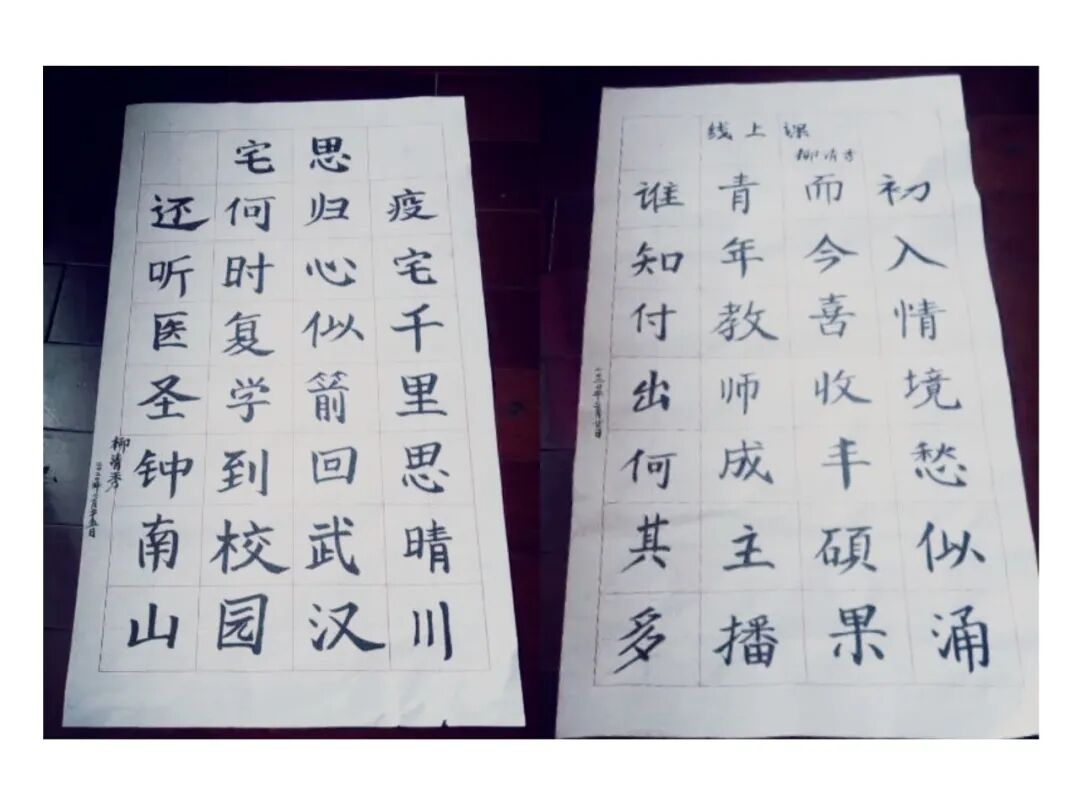 宅思
疫宅千里思晴川
归心似箭回武汉
何时复学到校园
还听医圣钟南山
柳清秀
线上课
柳清秀
初入情境愁似涌
而今喜收丰碩果
青年教师成主播
谁知付出何其多